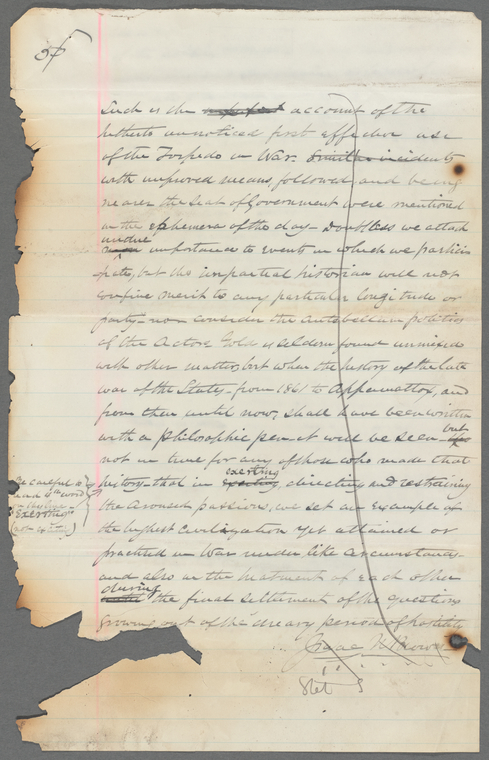 Such is the account of the
hitherto unnoticed first effective use
of the Torpedo in War. Similar incidents
with improved means, followed and being
nearer the Seat of Government were mentioned
in the ephemera of the day - Doubtless we attach
undue
importance to events in which we partici
pate, but the impartial historian will not
confine merit to any particular longitude or
party - nor consider the Antebellum politics
of the Actors. Gold is seldom found unmixed
with other matter, but when the history of the late
war of the States - from 1861 to Appomattox, and
from then until now, shall have been written
with a philosophic pen - it will be seen - but
not in time for any of those who made that
history - that in exciting exerting, directing and restraining
the aroused passions, we set an example of
the highest civilization yet attained or
practised in War under like circumstances
and also in the treatment of each other
during
the final settlement of the questions
growing out of the dreary period of hostility
Isaac N. Brown
Stet
Be careful to
4th word
in this line
"Exerting"